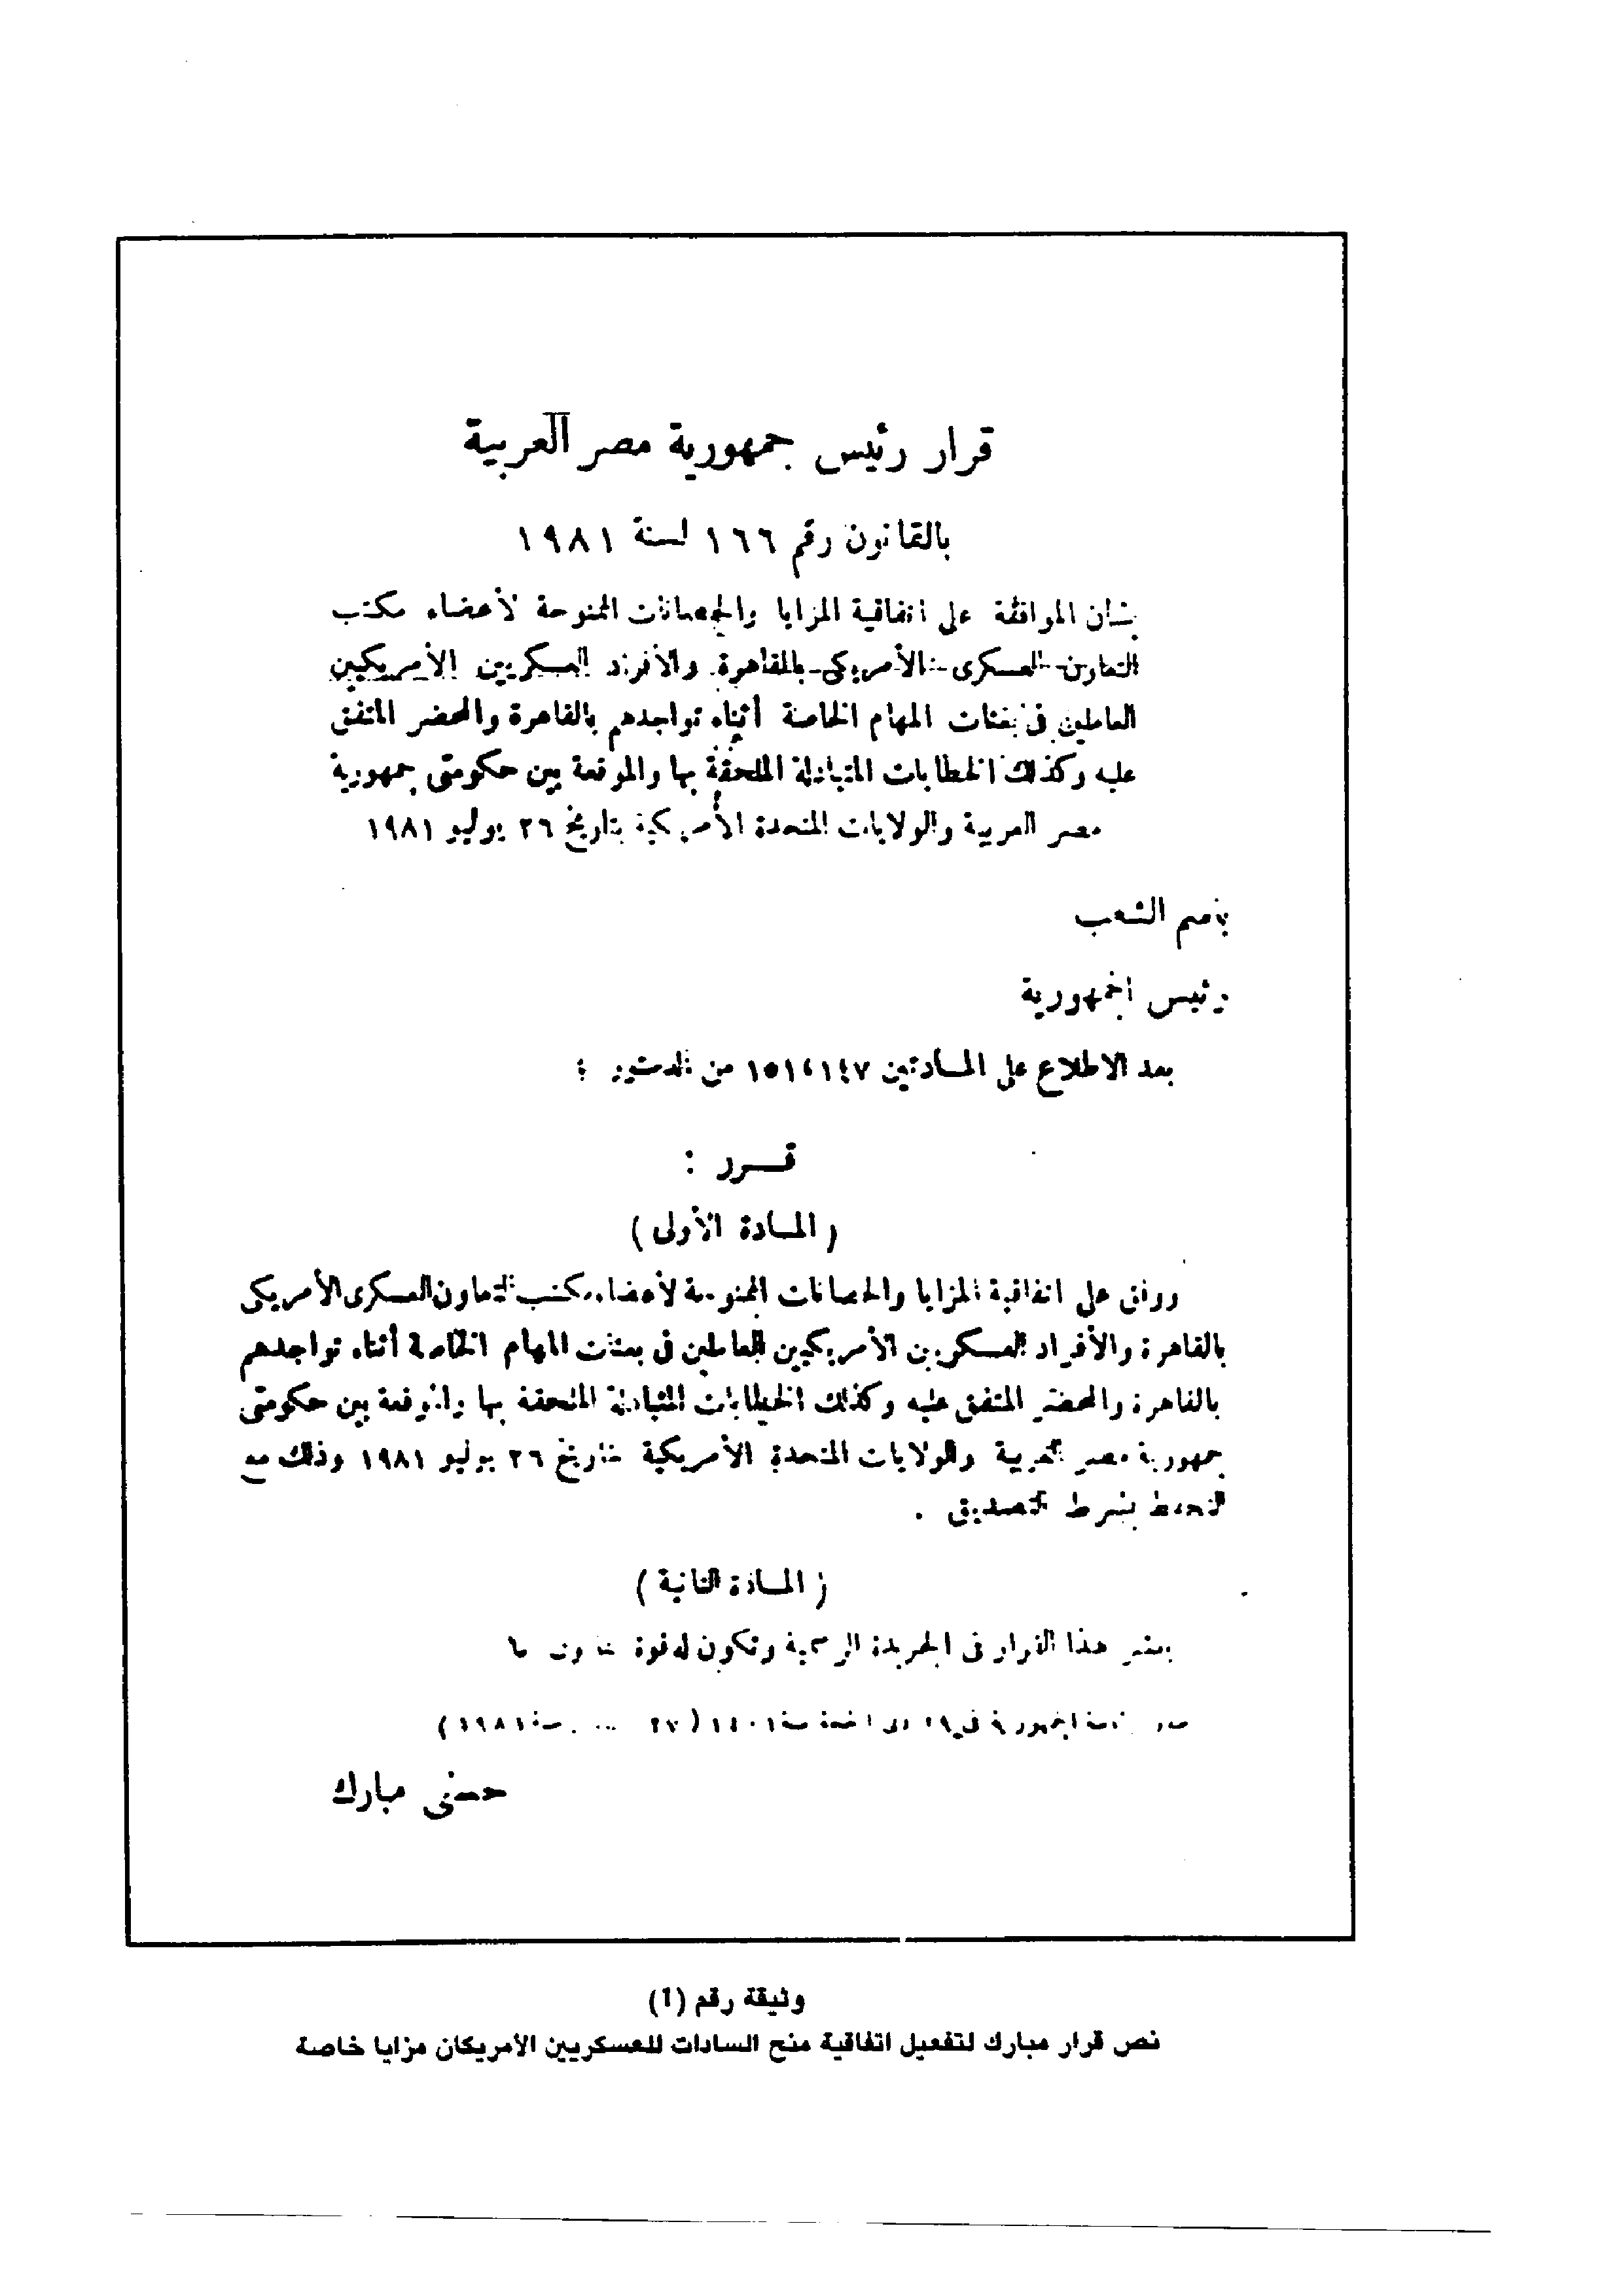 قرار رئيس جمهورية مصر العربية
بالقانون رقم ١٦٦ لسنة ١٩٨١
بشأن الموافقة على اتفاقية المزايا والحصانات الممنوحة لأعضاء مكتب
التعاون العسكرى الأمريكى بالقاهرة والأفراد العسكريين الأمريكيين
العاملين فى بعثات المهام الخاصة أثناء تواجدهم بالقاهرة والمحضر المتفق
عليه وكذلك الخطابات المتبادلة الملحقة بها والموقعة بين حكومتى جمهورية
مصر العربية والولايات المتحدة الأمريكية بتاريخ ٢٦ يوليو ١٩٨١
باسم الشعب
رئيس الجمهورية
بعد الاطلاع على المادتين ١٤٧ ، ١٥١ من الدستور ؛
قرر :
( المادة الأولى )
ووفق على اتفاقية المزايا والحصانات الممنوحة لأعضاء مكتب التعاون العسكرى الأمريكى
بالقاهرة والأفراد العسكريين الأمريكيين العاملين فى بعثات المهام الخاصة أثناء تواجدهم
بالقاهرة والمحضر المتفق عليه وكذلك الخطابات المتبادلة الملحقة بها والموقعة بين حكومتى
جمهورية مصر العربية والولايات المتحدة الأمريكية بتاريخ ٢٦ يوليو ١٩٨١ وذلك مع
التحفظ بشرط التصديق .
( المادة الثانية )
ينشر هذا القرار فى الجريدة الرسمية وتكون له قوة
الجمهورية فى ٢٩ ذى الحجة سنة ١٤٠١ ( ٢٧ سنة ١٩٨١ )
حسنى مبارك
وثيقة رقم (1)
نص قرار مبارك لتفعيل اتفاقية منح السادات للعسكريين الأمريكان مزايا خاصة